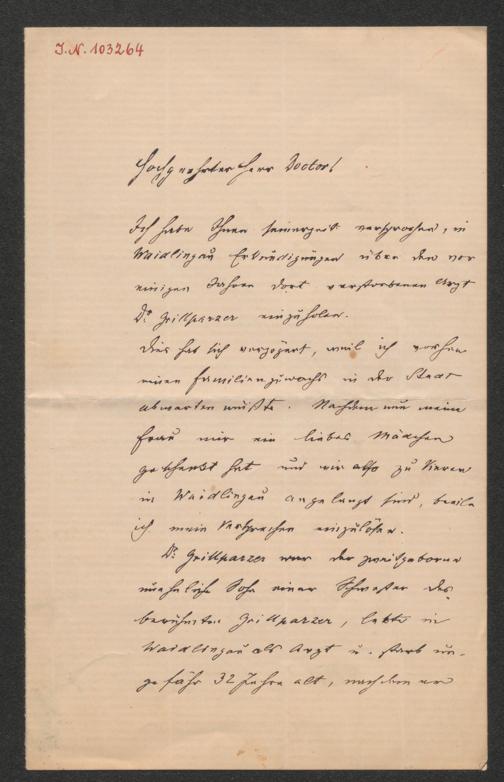 J.N. 103264
Hochgeehrter Herr Doctor!
Ich habe Ihnen seinerzeit versprochen, in
Weidlingau Erkundigungen über den vor
einigen Jahren dort verstorbenen Arzt
Dr Grillparzer einzuholen.
Dies hat sich verzögert, weil ich vorher
einen Familienzuwachs in der Stadt
abwarten mußte. Nachdem nun meine
Frau mir ein liebes Mädchen
geschenkt hat und wir also zu Vieren
in Weidlingau angelangt sind, beeile
ich mein Versprechen einzulösen.
Dr Grillparzer war der zweitgeborne
uneheliche Sohn einer Schwester des
berühmten Grillparzer, lebte in
Weidlingau als Arzt u. starb un-
gefähr 32 Jahre alt, nachdem er